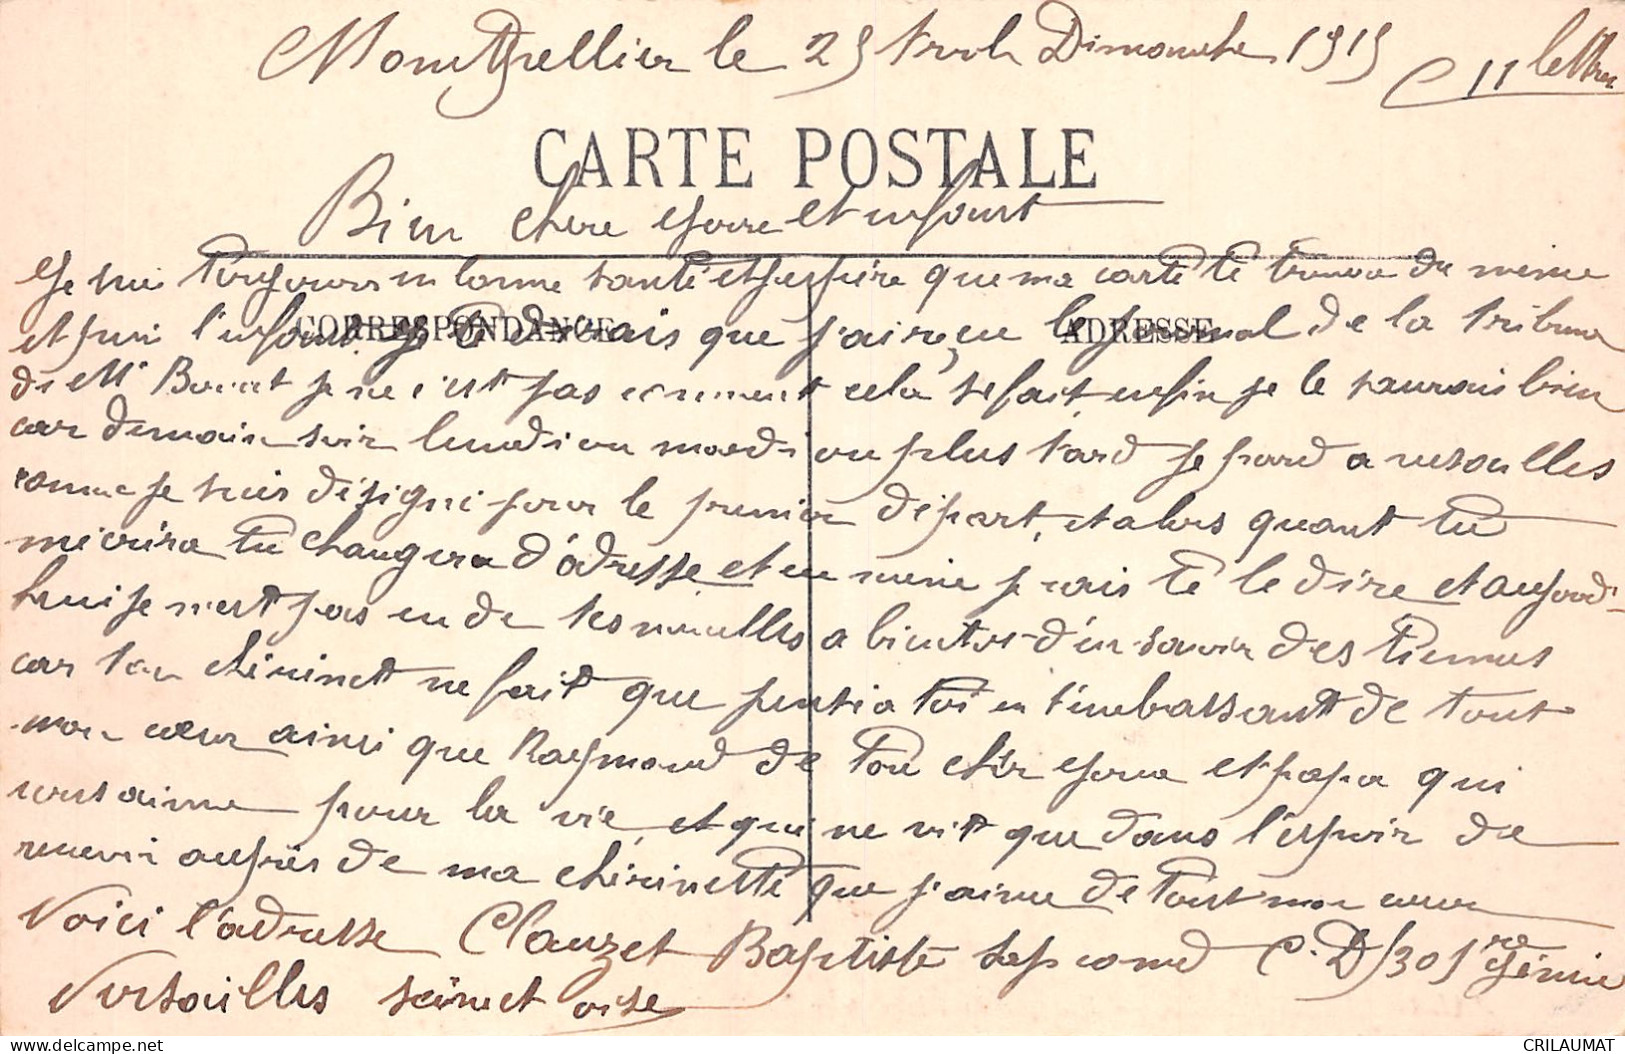 Montpellier le 25 Avril Dimanche 1915 11 lettres
CARTE POSTALE
Bien chere et enfant
Je suis toujours en bonne santé et j'espére que ma carte te trouva de même
CORRESPONDANCE
ADRESSE
et puis l'enfant je te dirais que j'ai reçu le journal de la tribune
de Mr je ne c'est pas comment cela se fait enfin je le saurais bien
car demain soir lundi ou mardi ou plus tard je pard a versailles
comme je suis désigné pour le premier départ, et alors quant tu
mécrira tu changera d'adresse et en même je vais te le dire et aujourd'
hui je n'est pas eu de tes nouvelles a bientot d'én savoir des tiennes
car ton chérinett ne fait que pensé a toi en t'embrassant de tout
mon cœur ainsi que Raymond de ton chér et papa qui
vous aime pour la vie et qui ne vitt que dans l'espoir de
revenir auprés de ma chérinette que j'aime de tout mon cœur
Voici l'adresse Clauzet Baptiste C.D/305re génie
Versailles seine et oise
CRILAUMAT